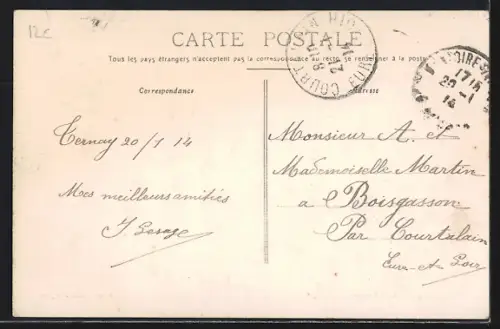 12€
CARTE POSTALE
Tous les pays étrangers n'acceptent pas la correspondance au recto, se renseigner à la poste
Correspondance
Adresse
COURTALAIN
EURE
17 15
20 - 1
14
Ternay 20/1 14
Mes meilleurs amitiés
J. Lesage
Monsieur A. et
Mademoiselle Martin
a Boisgasson
Par Courtalain
Eure-et-Loir